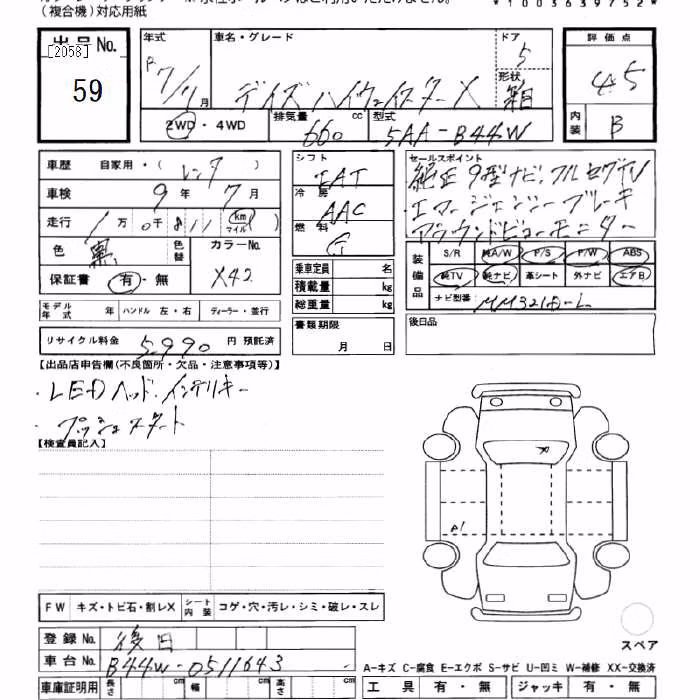 (複合機)対応用紙
*1003639752*
出品No.
[2058]
59
年式 車名・グレード ドア 5 評価点
R7/1月 デイズ ハイウェイスター X 形状 4.5
2WD・4WD 排気量 660 cc 型式 5AA-B44W 内装 B
車歴 自家用・(レンタ) シフト FAT セールスポイント
車検 9年 7月 冷房 AAC 純正9型ナビ、フルセグTV
走行 1万0千811 km マイル 燃料 G エマージェンシーブレーキ
色 黒 色替 カラーNo. X42 アラウンドビューモニター
保証書 有・無 乗車定員 名 装備品 S/R 純A/W P/S P/W ABS
積載量 kg 純TV 純ナビ 革シート 外ナビ エアB
モデル年式 年 ハンドル 左・右 ディーラー・並行 総重量 kg ナビ型番 MM321D-L
リサイクル料金 5,990 円 預託済 書類期限 月 日 後日品
【出品店申告欄(不良箇所・欠品・注意事項等)】
・LEDヘッド、インテリキー
・プッシュスタート
【検査員記入】
A1
FW キズ・トビ石・割レX シート内装 コゲ・穴・汚レ・シミ・破レ・スレ
登録No. 後日 スペア
車台No. B44W-0511643 A-キズ C-腐食 E-エクボ S-サビ U-凹ミ W-補修 XX-交換済
車庫証明用 長さ cm 幅 cm 高さ cm 工具 有・無 ジャッキ 有・無